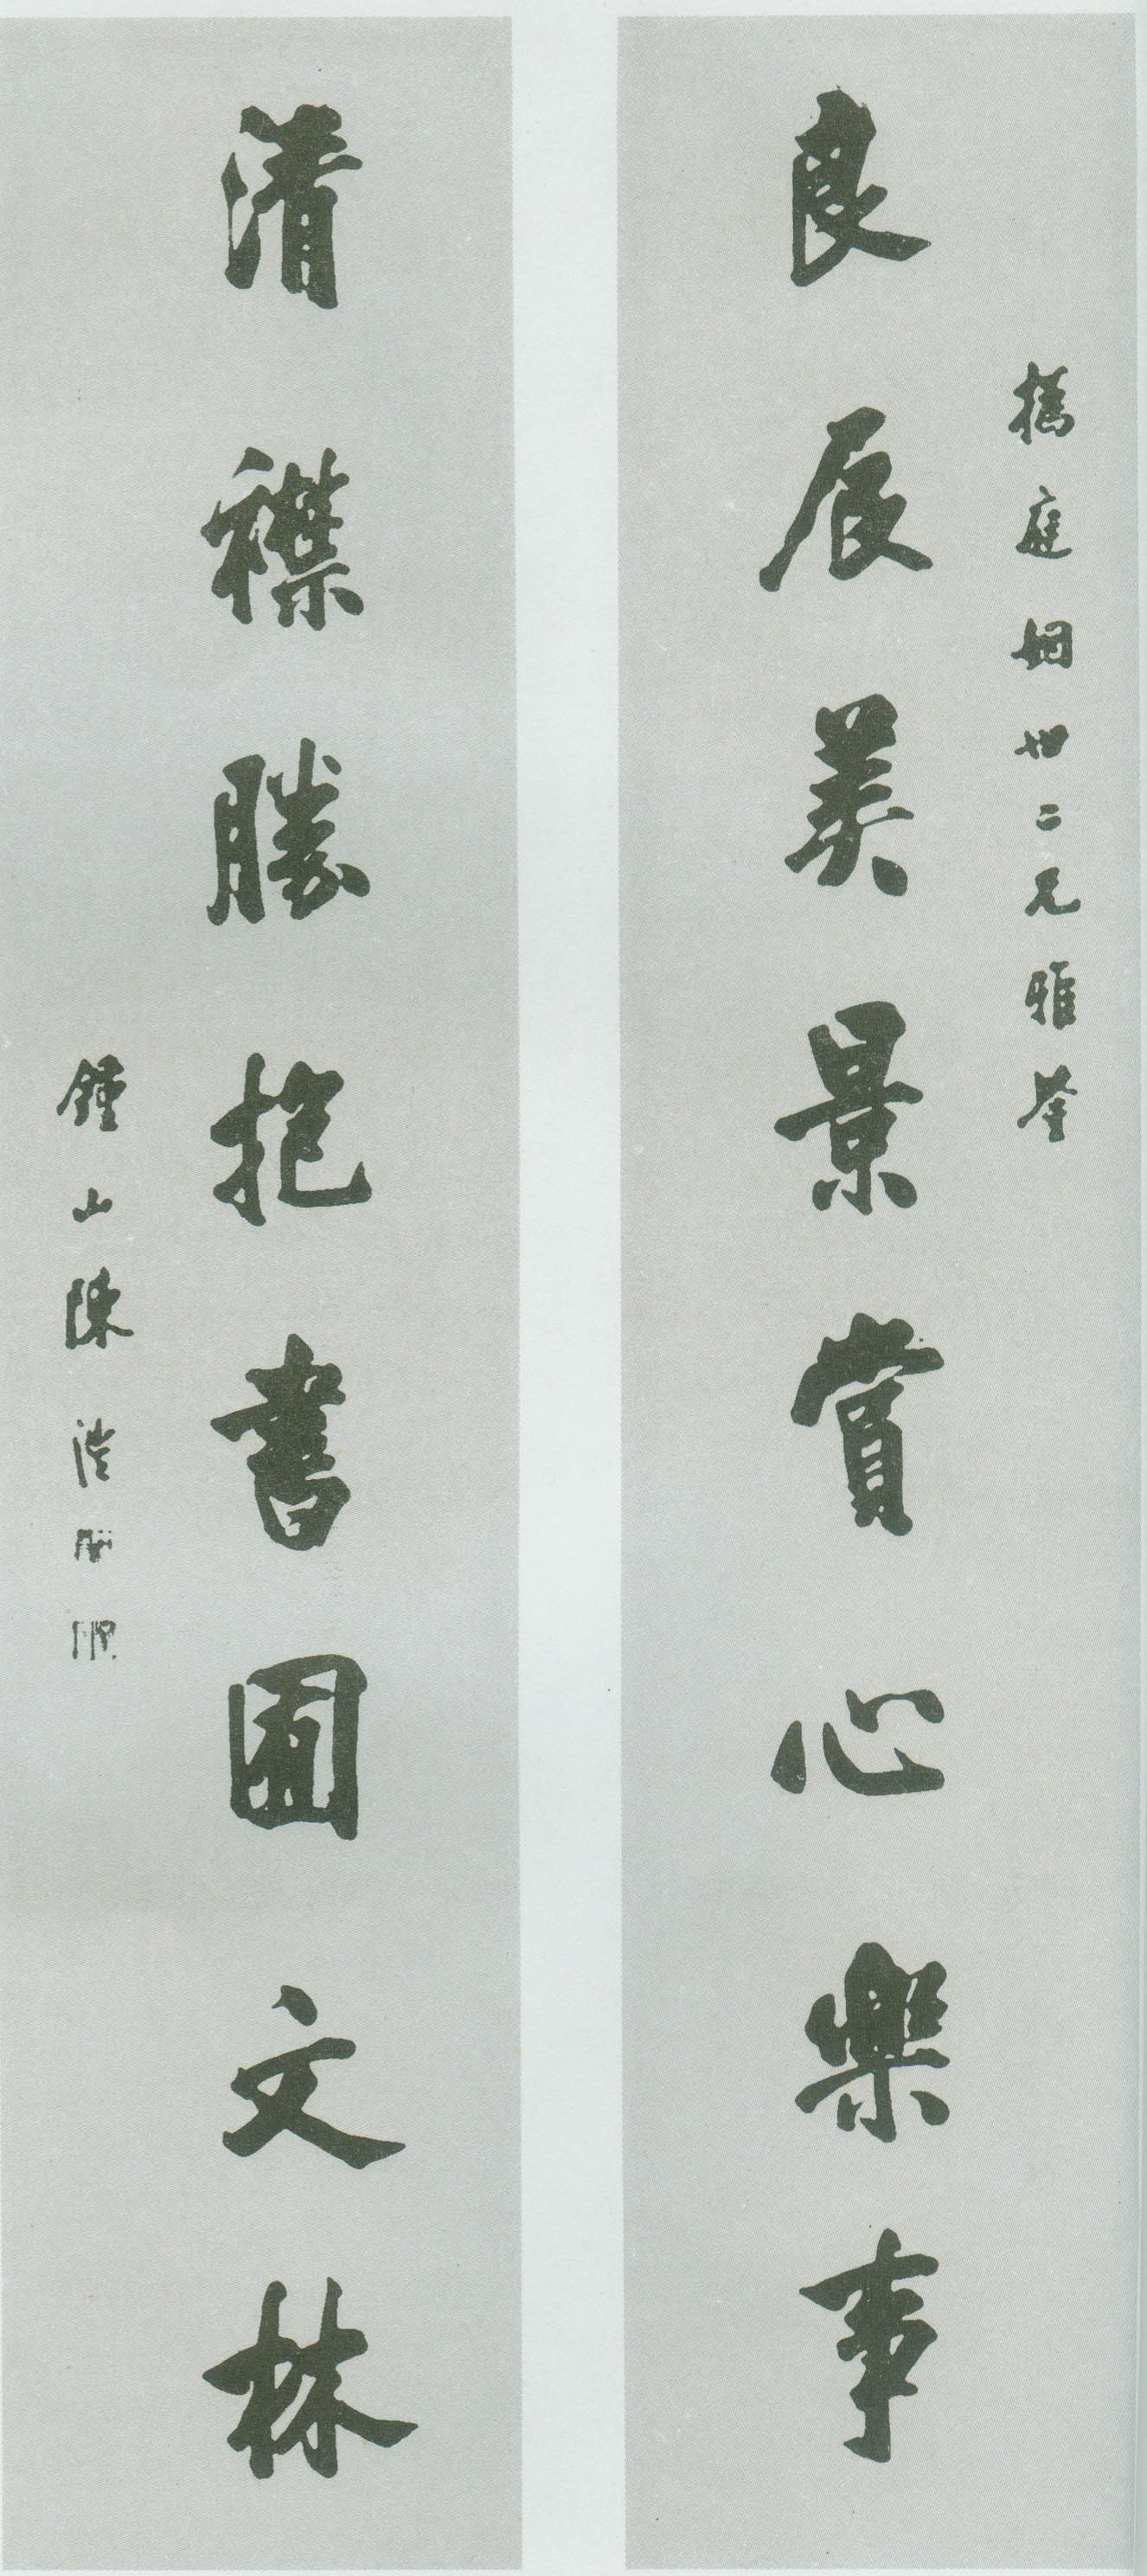 庭姻世二兄雅鉴
良辰美景賞心樂事
清襟勝抱書圃文林
鍾山陳澄